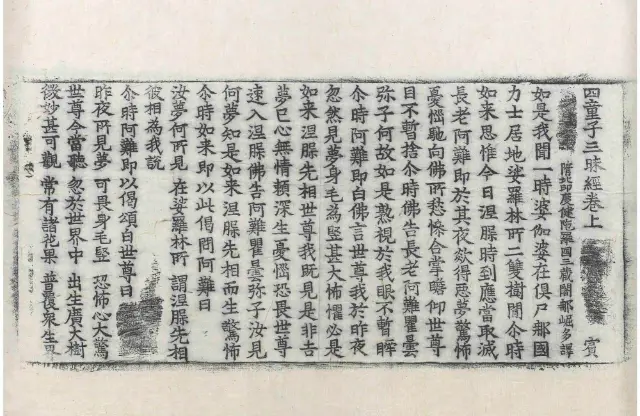 四童子三昧經卷上 賓
隋北印度健陁羅國三藏闍那崛多譯
如是我聞一時婆伽婆在俱尸那國
力士居地娑羅林所二雙樹間尒時
如來思惟今日涅槃時到應當取滅
長老阿難即於其夜欻得惡夢驚怖
憂惱馳向佛所愁慘合掌瞻仰世尊
目不暫捨尒時佛告長老阿難瞿曇
弥子何故如是熟視於我眼不暫瞬
尒時阿難即白佛言世尊我於昨夜
忽然見夢身毛為竪甚大怖懼必是
如來涅槃先相世尊我既見是非吉
夢已心無情頼深生憂惱恐畏世尊
速入涅槃佛告阿難瞿曇弥子汝見
何夢知是如来涅槃先相而生驚怖
尒時如来即以此偈問阿難曰
汝夢何所見 在娑羅林所 謂涅槃先相
彼相為我說
尒時阿難即以偈頌白世尊曰
昨夜所見夢 可畏身毛竪 恐怖心大驚
世尊今當聽 忽於世界中 出生廣大樹
微妙甚可觀 常有諸花果 普覆衆生界